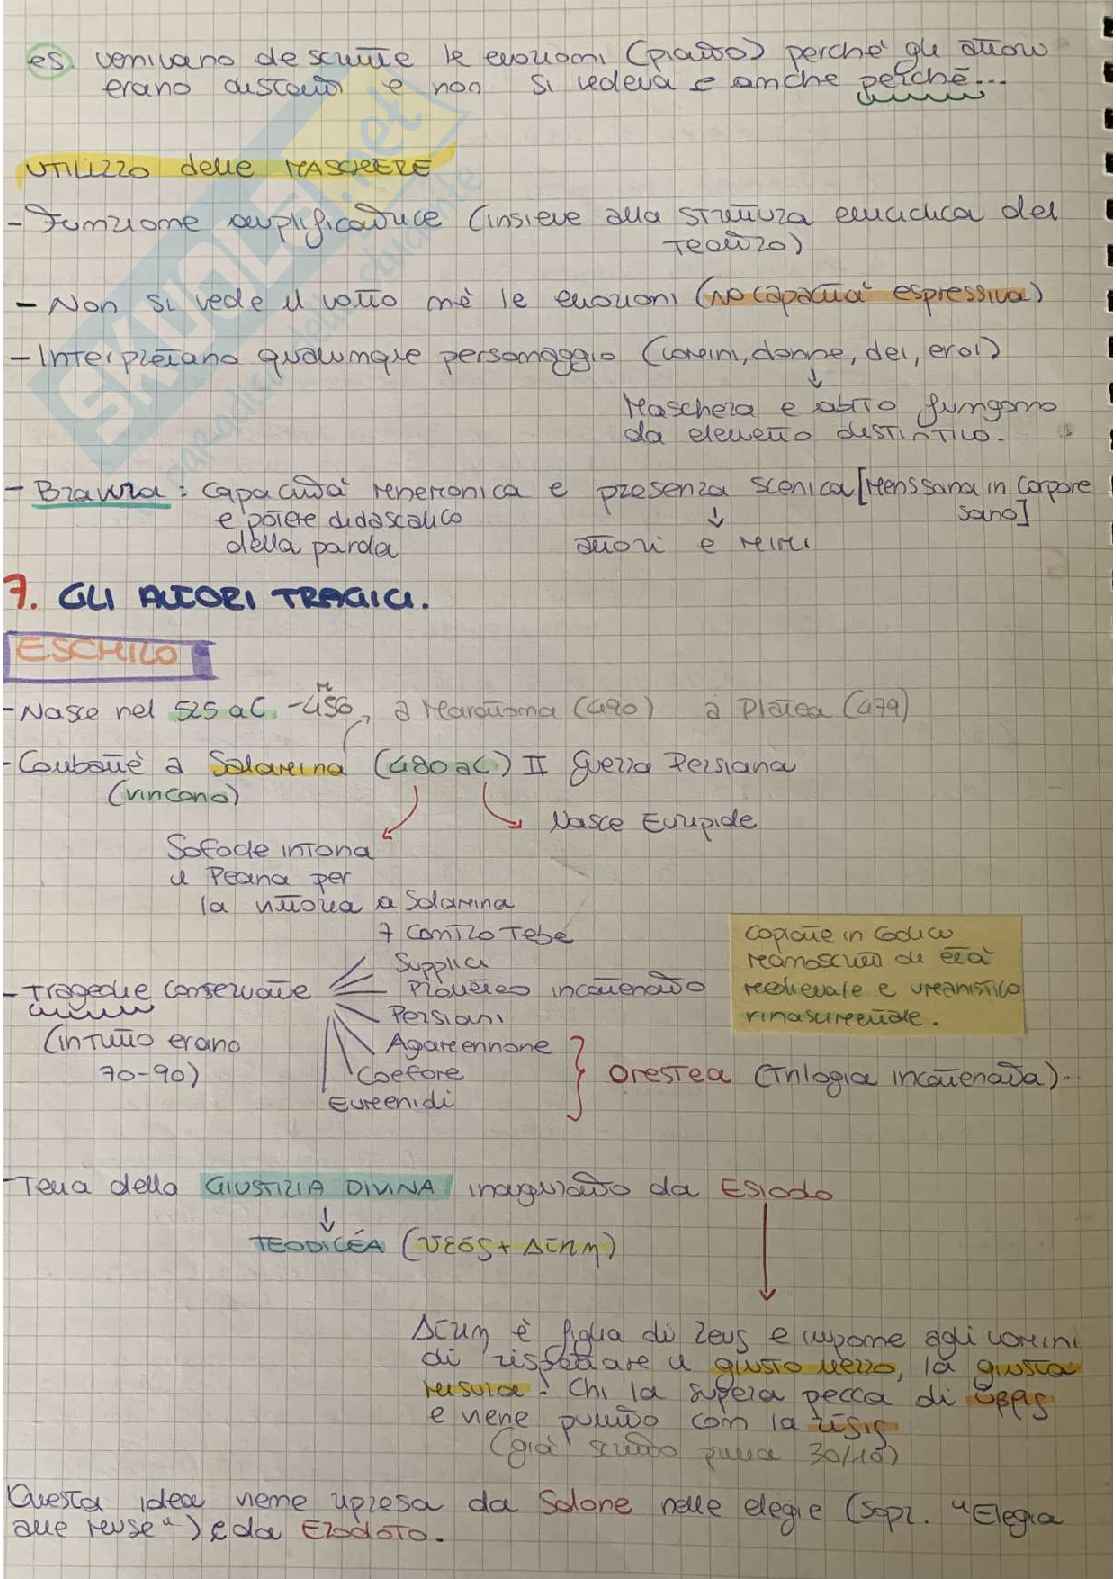 es. venivano descritte le emozioni (pianto) perché gli attori
erano distanti e non si vedeva e anche perché...
UTILIZZO delle MASCHERE
- Funzione amplificatrice (insieme alla struttura acustica del
teatro)
- Non si vede il volto né le emozioni (no capacità espressiva)
- Interpretano qualunque personaggio (uomini, donne, dei, eroi)
↓
Maschera e abito fungono
da elemento distintivo.
- Bravura: capacità mnemonica e presenza scenica [Menssana in Corpore
e potere didascalico ↓ sano]
della parola attori e mimi
7. GLI AUTORI TRAGICI.
ESCHILO
- Nasce nel 525 a.C. - 456, a Maratona (490) a Platea (479)
- Combatté a Salamina (480 aC) II Guerra Persiana
(vincono)
Nasce Euripide
Sofocle intona
il Peana per
la vittoria a Salamina
7 contro Tebe
Supplici
- Tragedie conservate Prometeo incatenato
Persiani
(in tutto erano Agamennone
70-90) Coefore Orestea (Trilogia incatenata).
Eumenidi
copiate in codici
manoscritti di età
medievale e umanistico
rinascimentale.
- Tema della GIUSTIZIA DIVINA inaugurato da Esiodo
↓
TEODICEA (ϑεός + Δίκη)
Δίκη è figlia di Zeus e impone agli uomini
di rispettare il giusto mezzo, la giusta
misura. Chi la supera pecca di ὕβρις
e viene punito con la τίσις
(già scritto prima 30/10)
Questa idea viene ripresa da Solone nelle elegie (sopr. "Elegia
alle muse") e da Erodoto.